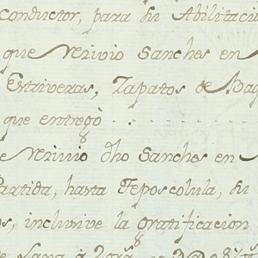 conductor, para su Abilitaci
que recivio Sanches en
Estriveras, Zapatos de Baq
que entregò
recivio dho Sanches en
Partida, hasta Teposcolula, su
os, inclusive la gratificacion